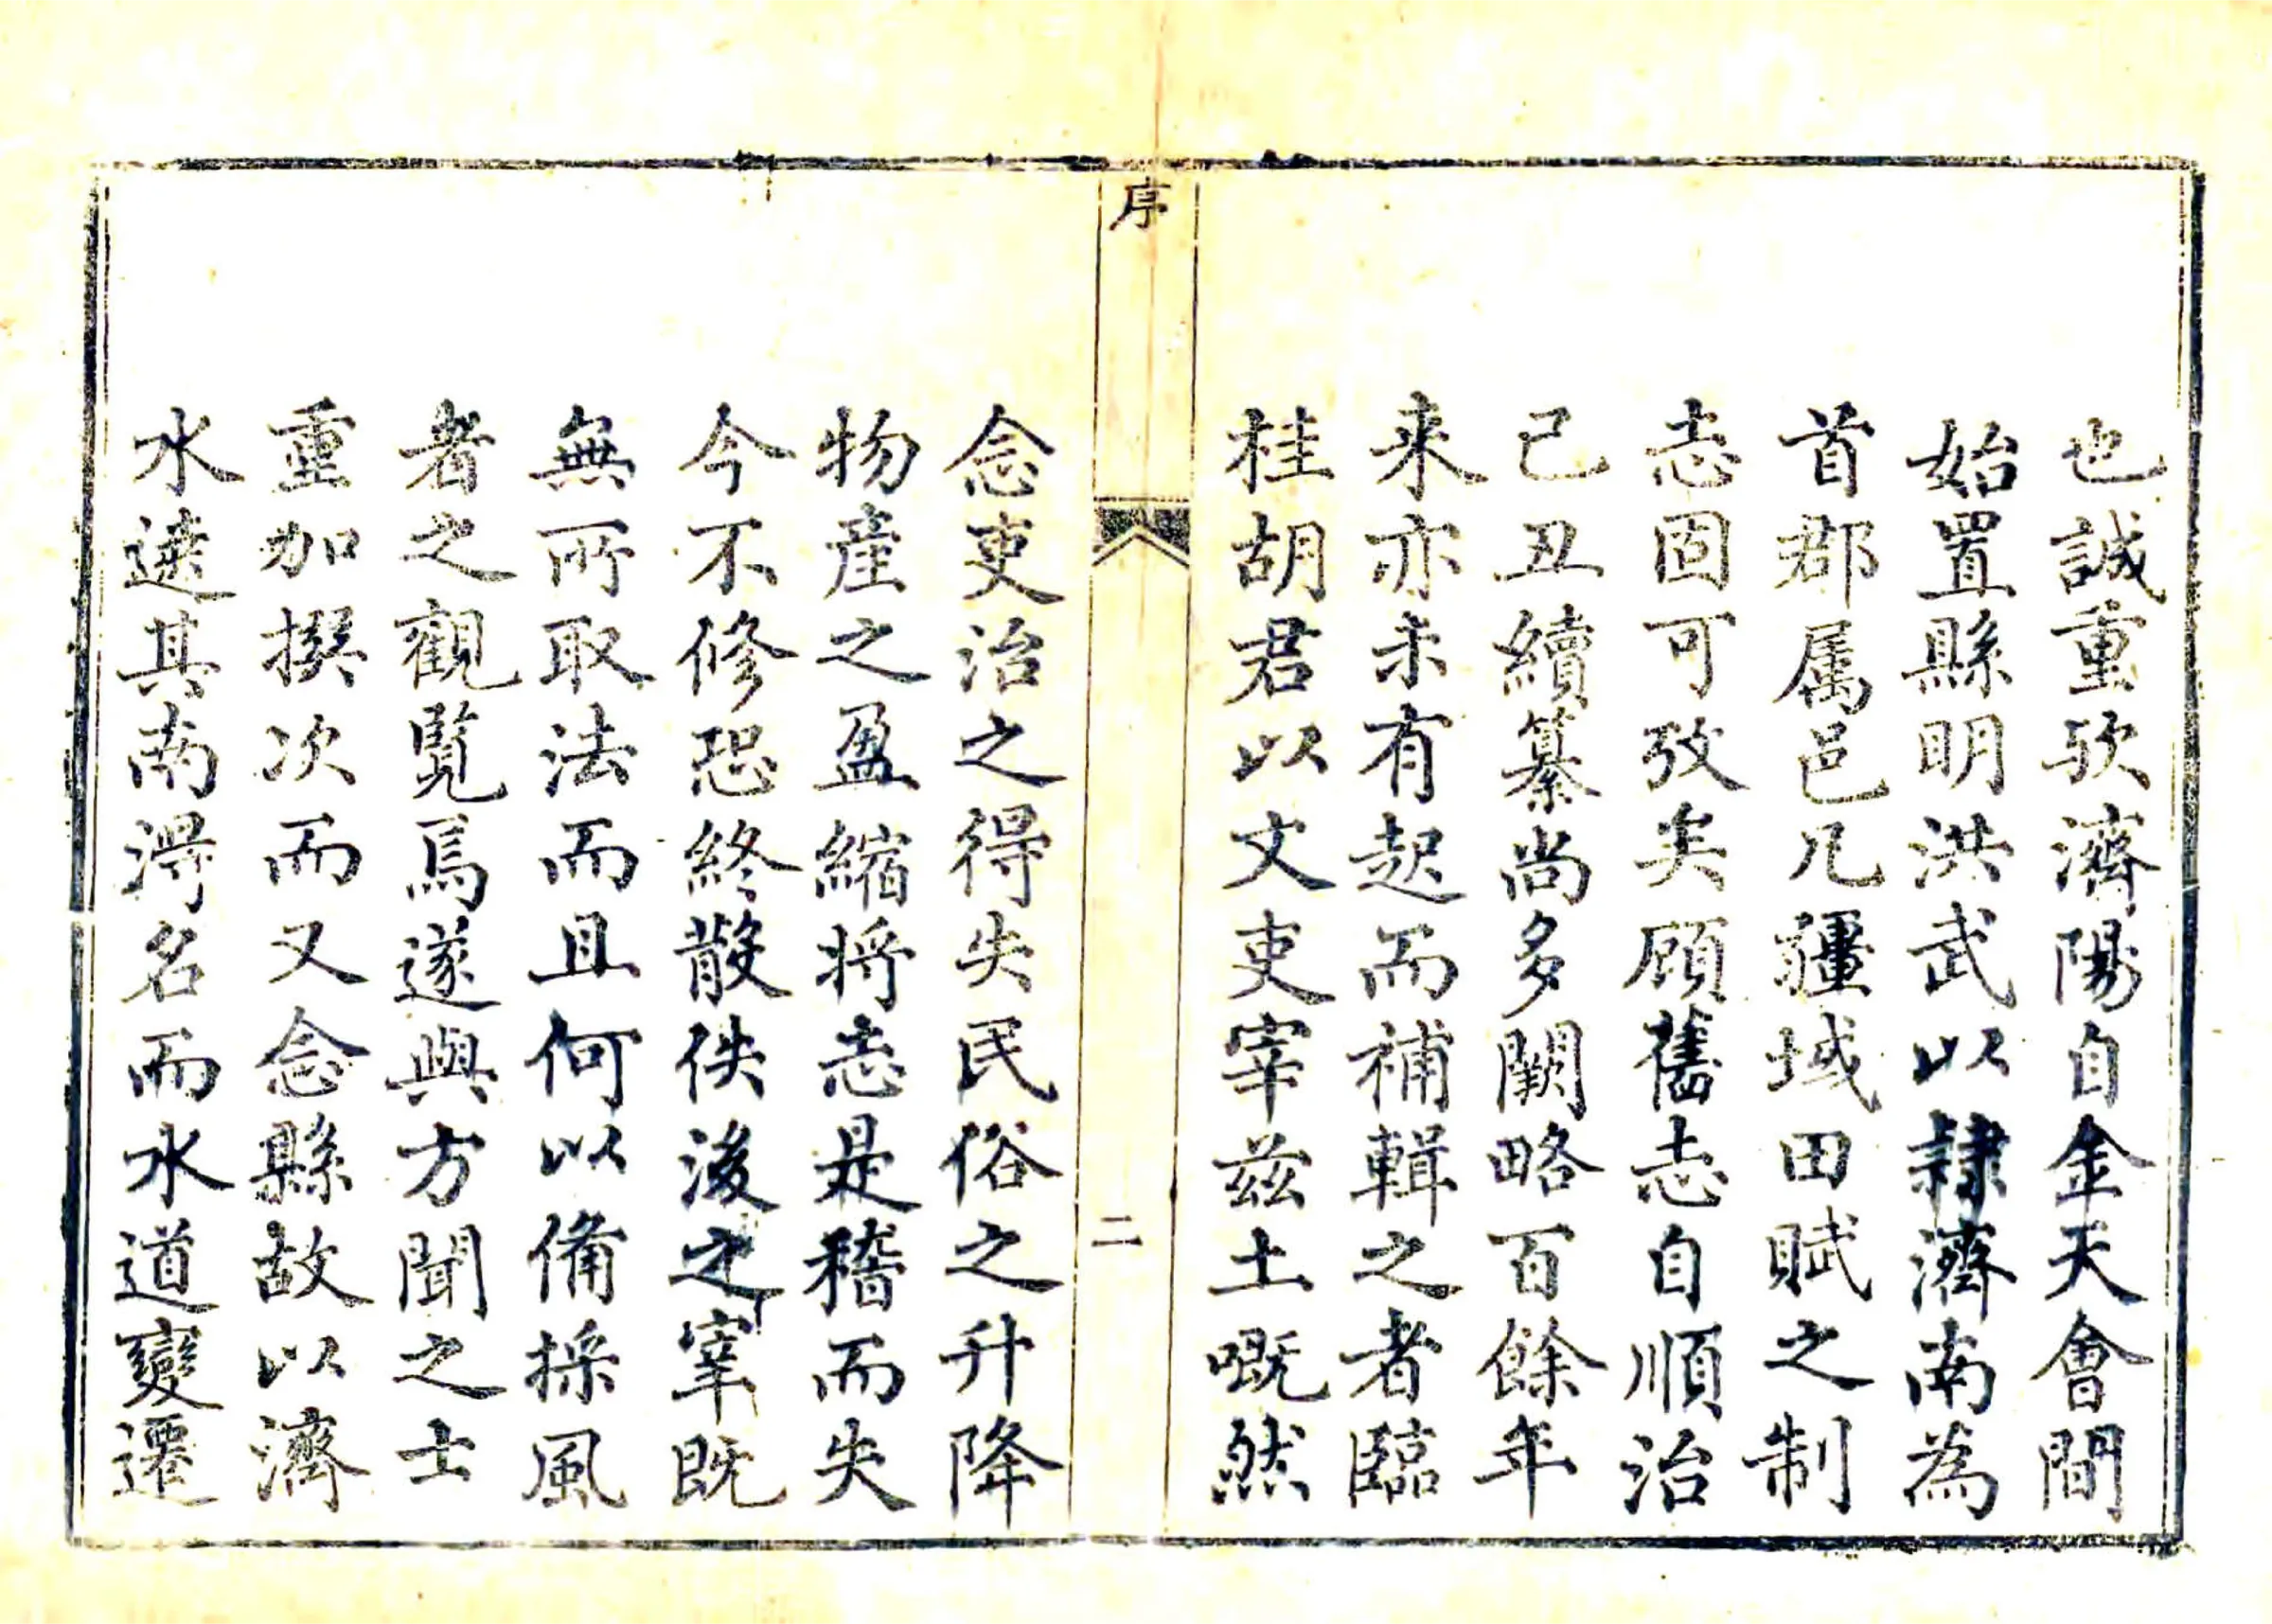 也誠重欤濟陽自金天會間
始置縣明洪武以隸濟南為
首郡属邑凡疆域田賦之制
志固可攷矣顧舊志自順治
己丑續纂尚多闕略百餘年
来亦未有起而補輯之者臨
桂胡君以文吏宰茲土嘅然
序
二
念吏治之得失民俗之升降
物產之盈縮将志是稽而失
今不修恐終散佚後之宰既
無所取法而且何以備採風
者之觀覧焉遂與方聞之士
重加撰次而又念縣故以濟
水遶其南得名而水道變遷